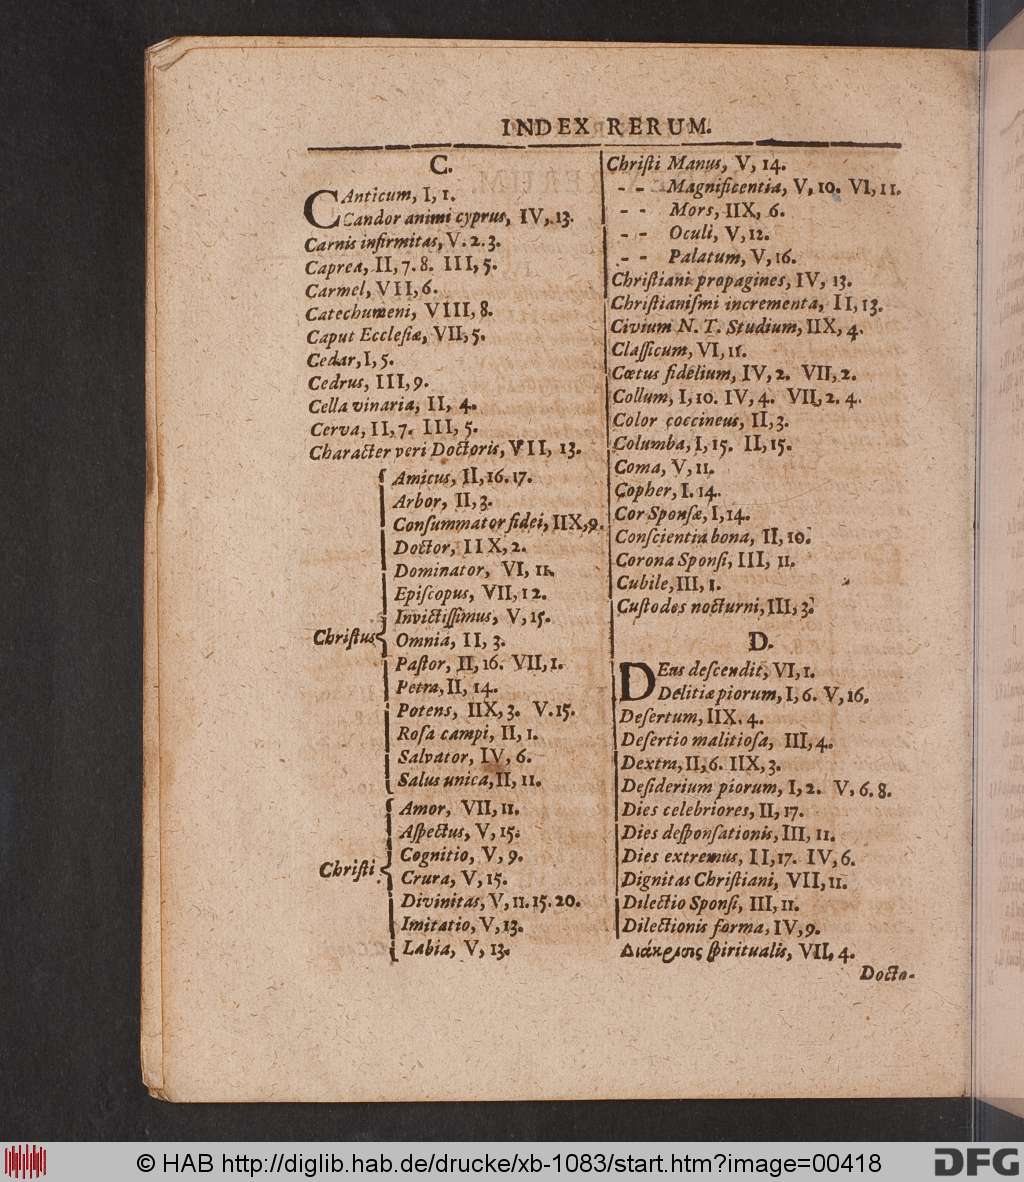 INDEX RERUM.
C.
CAnticum, I, 1.
Candor animi cyprus, IV, 13.
Carnis infirmitas, V. 2. 3.
Caprea, II, 7. 8. III, 5.
Carmel, VII, 6.
Catechumeni, VIII, 8.
Caput Ecclesiæ, VII, 5.
Cedar, I, 5.
Cedrus, III, 9.
Cella vinaria, II, 4.
Cerva, II, 7. III, 5.
Character veri Doctoris, VII, 13.
Amicus, II, 16. 17.
Arbor, II, 3.
Consummator fidei, IIX, 9.
Doctor, IIX, 2.
Dominator, VI, 11.
Episcopus, VII, 12.
Invictissimus, V, 15.
Christus
Omnia, II, 3.
Pastor, II, 16. VII, 1.
Petra, II, 14.
Potens, IIX, 3. V. 15.
Rosa campi, II, 1.
Salvator, IV, 6.
Salus unica, II, 11.
Amor, VII, 11.
Aspectus, V, 15.
Cognitio, V, 9.
Christi
Crura, V, 15.
Divinitas, V, 11. 15. 20.
Imitatio, V, 13.
Labia, V, 13.
Christi Manus, V, 14.
- - Magnificentia, V, 10. VI, 11.
- - Mors, IIX, 6.
- - Oculi, V, 12.
- - Palatum, V, 16.
Christiani propagines, IV, 13.
Christianismi incrementa, II, 13.
Civium N. T. Studium, IIX, 4.
Classicum, VI, 11.
Cœtus fidelium, IV, 2. VII, 2.
Collum, I, 10. IV, 4. VII, 2. 4.
Color coccineus, II, 3.
Columba, I, 15. II, 15.
Coma, V, 11.
Copher, I. 14.
Cor Sponsæ, I, 14.
Conscientia bona, II, 10.
Corona Sponsi, III, 11.
Cubile, III, 1.
Custodes nocturni, III, 3.
D.
DEus descendit, VI, 1.
Delitiæ piorum, I, 6. V, 16.
Desertum, IIX, 4.
Desertio malitiosa, III, 4.
Dextra, II, 6. IIX, 3.
Desiderium piorum, I, 2. V, 6. 8.
Dies celebriores, II, 17.
Dies desponsationis, III, 11.
Dies extremus, II, 17. IV, 6.
Dignitas Christiani, VII, 11.
Dilectio Sponsi, III, 11.
Dilectionis forma, IV, 9.
Διάκρισις spiritualis, VII, 4.
Docto-
© HAB http://diglib.hab.de/drucke/xb-1083/start.htm?image=00418
DFG